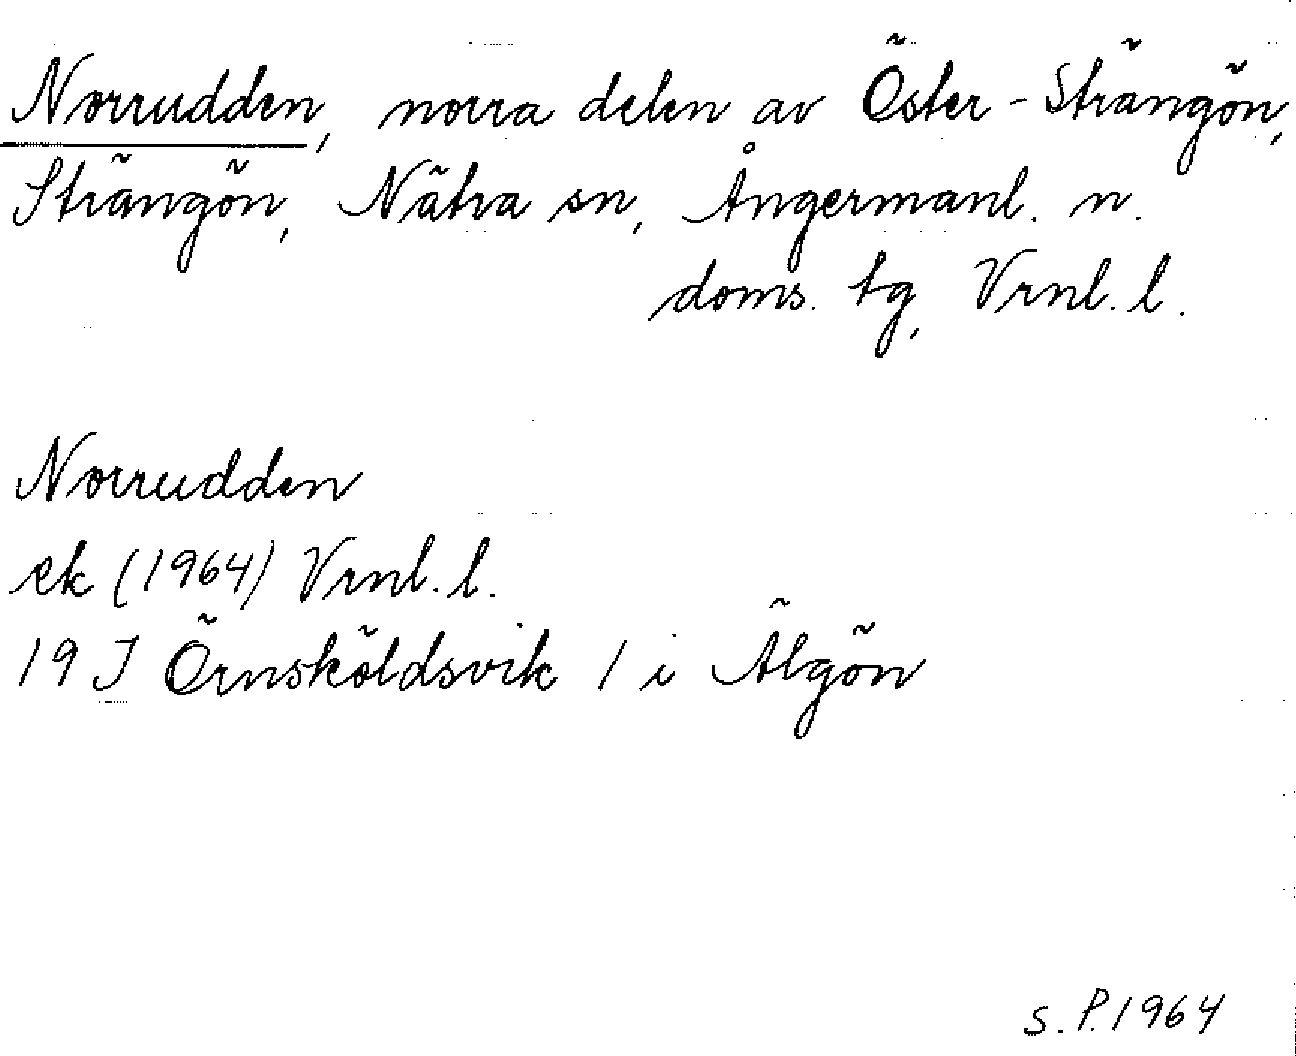 Norrudden, norra delen av Öster-Strängön,
Strängön, Nätra sn, Ångermanl. n.
doms. tg, Vrnl. l.
Norrudden
ek (1964) Vrnl. l.
19 J Örnsköldsvik 1 i Älgön
S. P. 1964